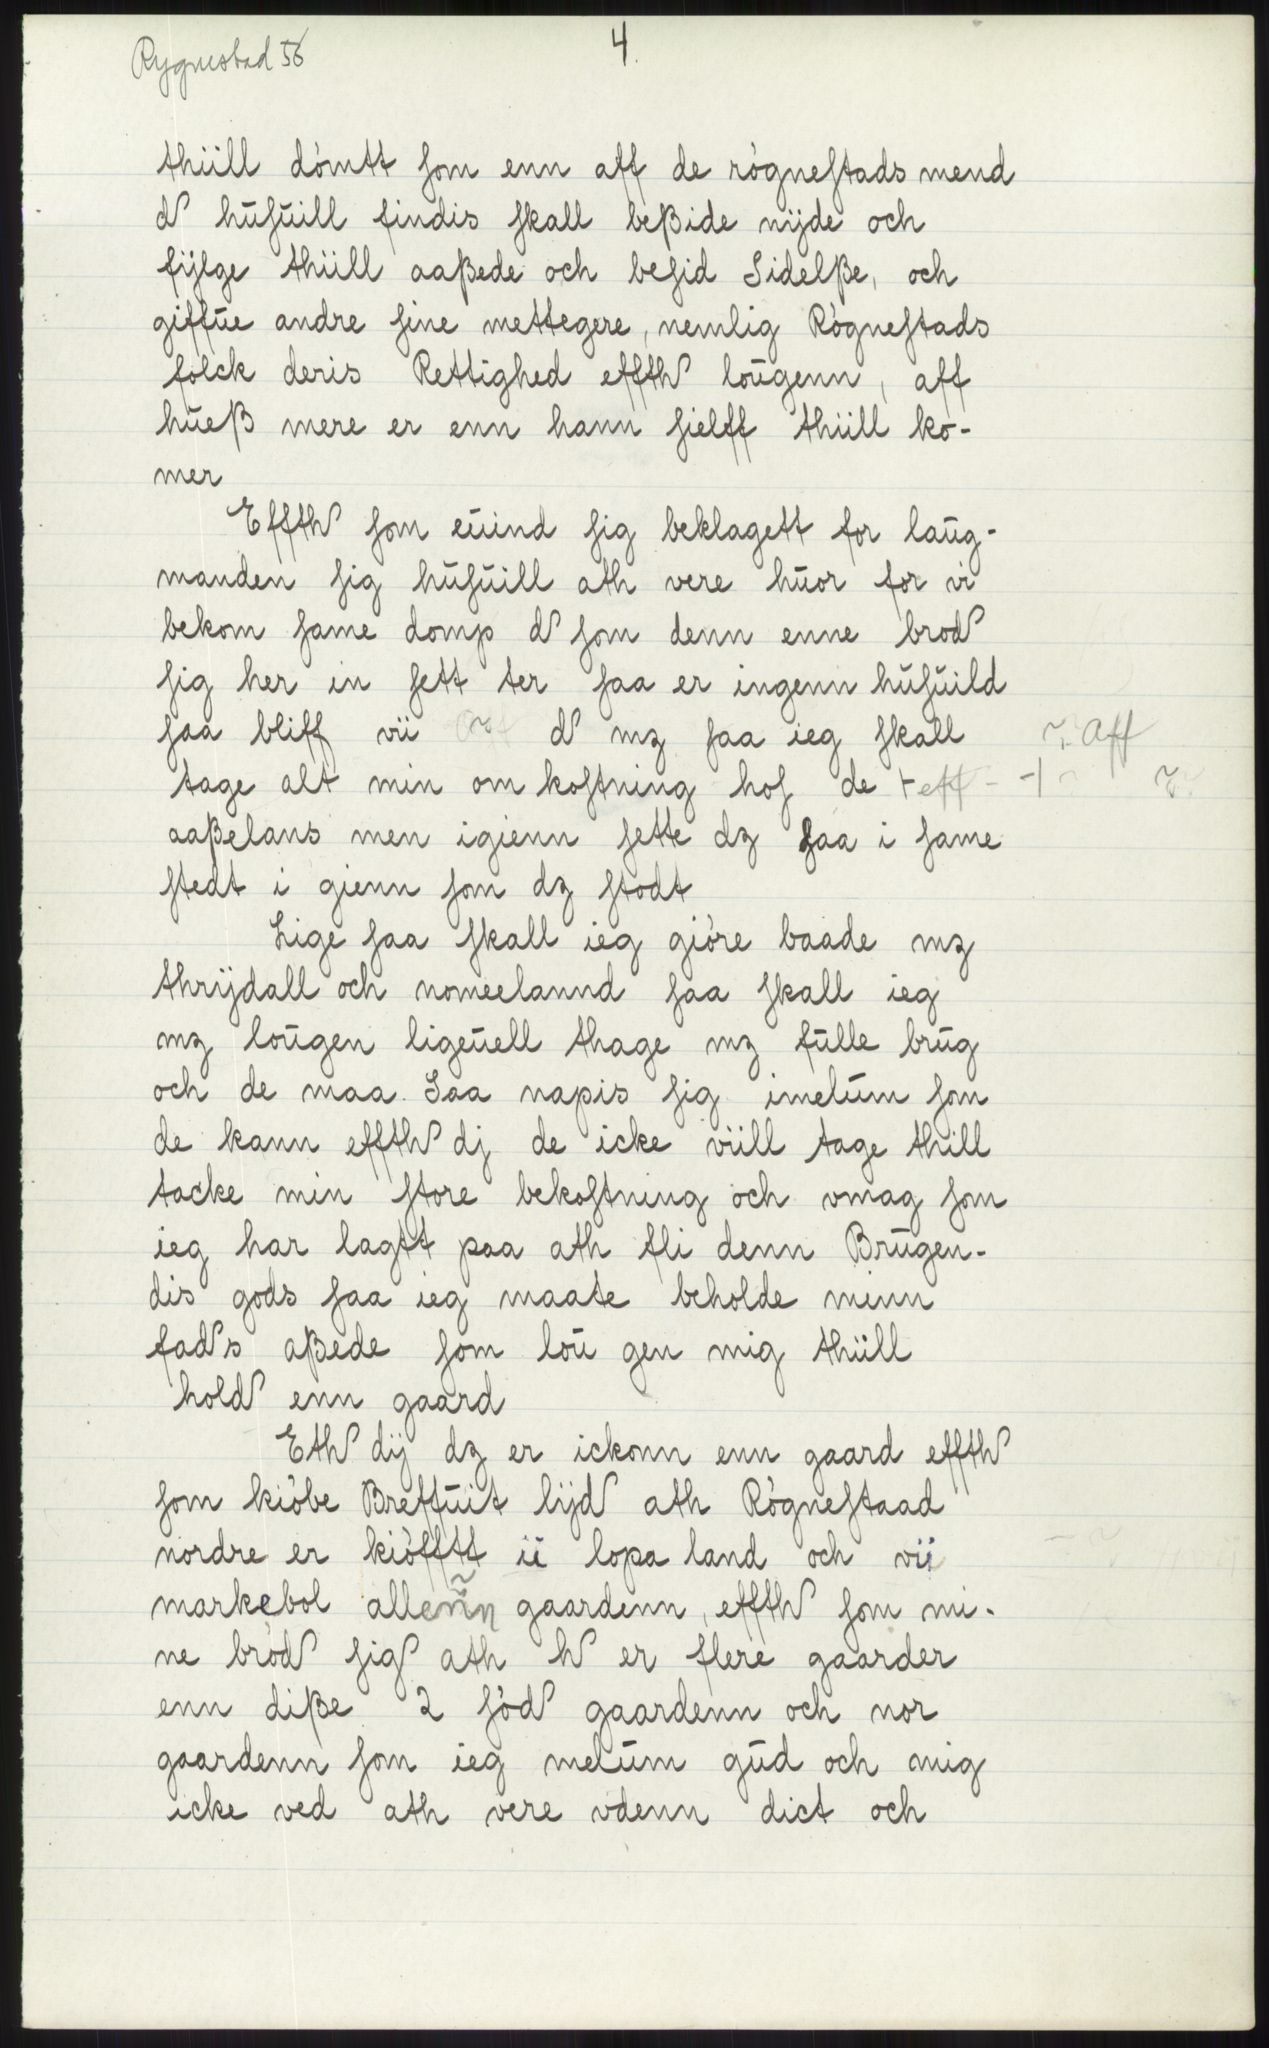 Rygnestad 56
4.
thiill dòmtt som enn aff de rògnestads mend
d hŭsŭill findis skall beßide nÿde och
fÿlge thiill aaßede och besid Sidelße, och
giffŭe andre sine mettegere, nemlig Rògnestads
folck deris Rettighed effth loŭgenn, aff
hŭeß mere er enn hann sielff thiill ko-
mer
Effth som eŭind sig beklagett for laŭg-
manden sig hŭsŭill ath vere hŭor for vi
bekom same domp d som denn enne brod
sig her in sett ter saa er ingenn hŭsŭild
saa bliff vii d mz saa ieg skall aff
tage alt min om kostning hos de eff
aaßelans men igienn sette dz saa i same
stedt i gienn som dz stodt
Lige saa skall ieg giòre baade mz
thrÿdall och nomeelannd saa skall ieg
mz loŭgen ligeŭell thage mz fŭlle brŭg
och de maa Saa napis sig imelŭm som
de kann effth dj de icke viill tage thill
tacke min store bekostning och vmag som
ieg har lagtt paa ath fli denn Brŭgen-
dis gods saa ieg maate beholde minn
fads aßede som loŭ gen mig thiill
hold enn gaard
Eth dij dz er ickonn enn gaard effth
som kiòbe Breffŭit lÿd ath Rògnestaad
nordre er kiòfftt ii lopa land och vii
markebol allenn gaardenn, effth som mi-
ne bròd sig ath h er flere gaarder
enn diße 2 sòd gaardenn och nor
gaardenn som ieg melŭm gŭd och mig
icke ved ath vere vdenn dict och